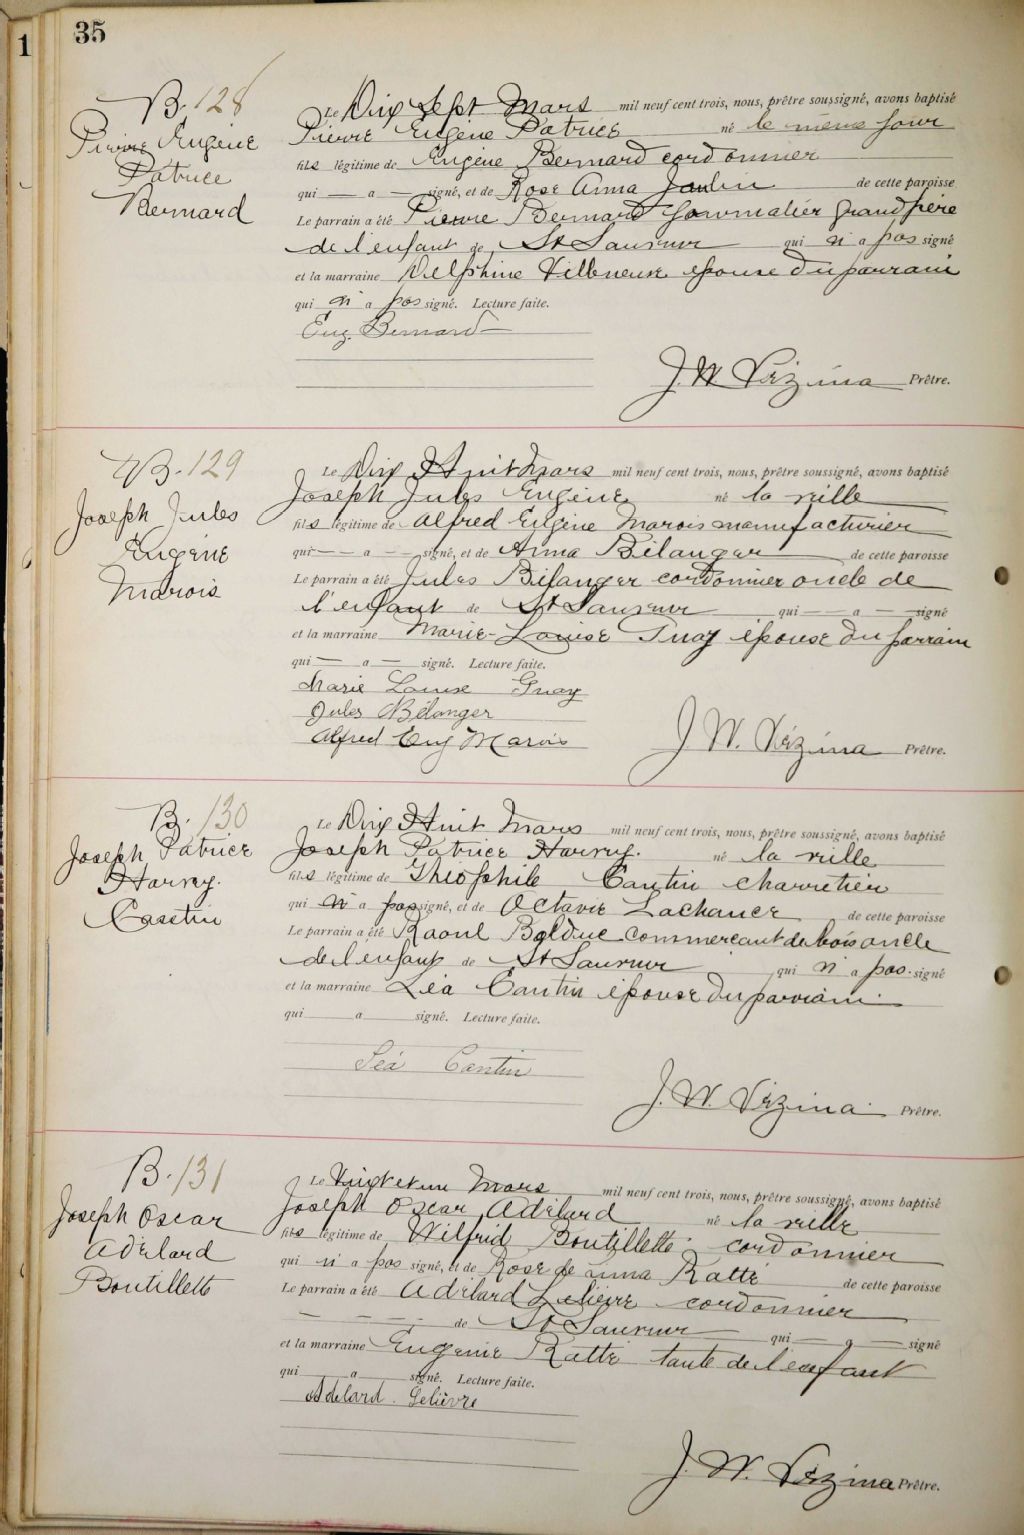 1
35
B. 128
Pierre Eugène
Patrice
Bernard
Le Dix Sept Mars mil neuf cent trois, nous, prêtre soussigné, avons baptisé
Pierre Eugène Patrice né le même jour
fils légitime de Eugène Bernard cordonnier
qui — a — signé, et de Rose Anna Jaulin de cette paroisse
Le parrain a été Pierre Bernard Grand père
de l'enfant de St Sauveur qui n' a pas signé
et la marraine Delphine Villeneuve épouse du parrain
qui n' a pas signé. Lecture faite.
Eug. Bernard
J. W. Vézina Prêtre.
B. 129
Joseph Jules
Eugène
Marois
Le Dix Huit Mars mil neuf cent trois, nous, prêtre soussigné, avons baptisé
Joseph Jules Eugène né la veille
fils légitime de Alfred Eugène Marois manufacturier
qui — a — signé, et de Anna Bélanger de cette paroisse
Le parrain a été Jules Bélanger cordonnier oncle de
l'enfant de St Sauveur qui — a — signé
et la marraine Marie-Louise Guay épouse du parrain
qui — a — signé. Lecture faite.
Marie Louise Guay
Jules Bélanger
Alfred Eug Marois
J. W. Vézina Prêtre.
B. 130
Joseph Patrice
Harry.
Cantin
Le Dix Huit Mars mil neuf cent trois, nous, prêtre soussigné, avons baptisé
Joseph Patrice Harry. né la veille
fils légitime de Théophile Cantin charretier
qui n' a pas signé, et de Octavie Lachance de cette paroisse
Le parrain a été Raoul Bolduc commerçant de bois oncle
de l'enfant de St Sauveur qui n' a pas signé
et la marraine Léa Cantin épouse du parrain
qui a signé. Lecture faite.
Léa Cantin
J. W. Vézina Prêtre.
B. 131
Joseph Oscar
Adélard
Boutillette
Le Vingt et un Mars mil neuf cent trois, nous, prêtre soussigné, avons baptisé
Joseph Oscar Adélard né la veille
fils légitime de Wilfrid Boutillette cordonnier
qui n' a pas signé, et de Rose de anna Ratté de cette paroisse
Le parrain a été Adélard Lelièvre cordonnier
— — — de St Sauveur qui — a — signé
et la marraine Eugénie Ratté tante de l'enfant
qui a signé. Lecture faite.
Adelard Lelièvre
J. W. Vézina Prêtre.